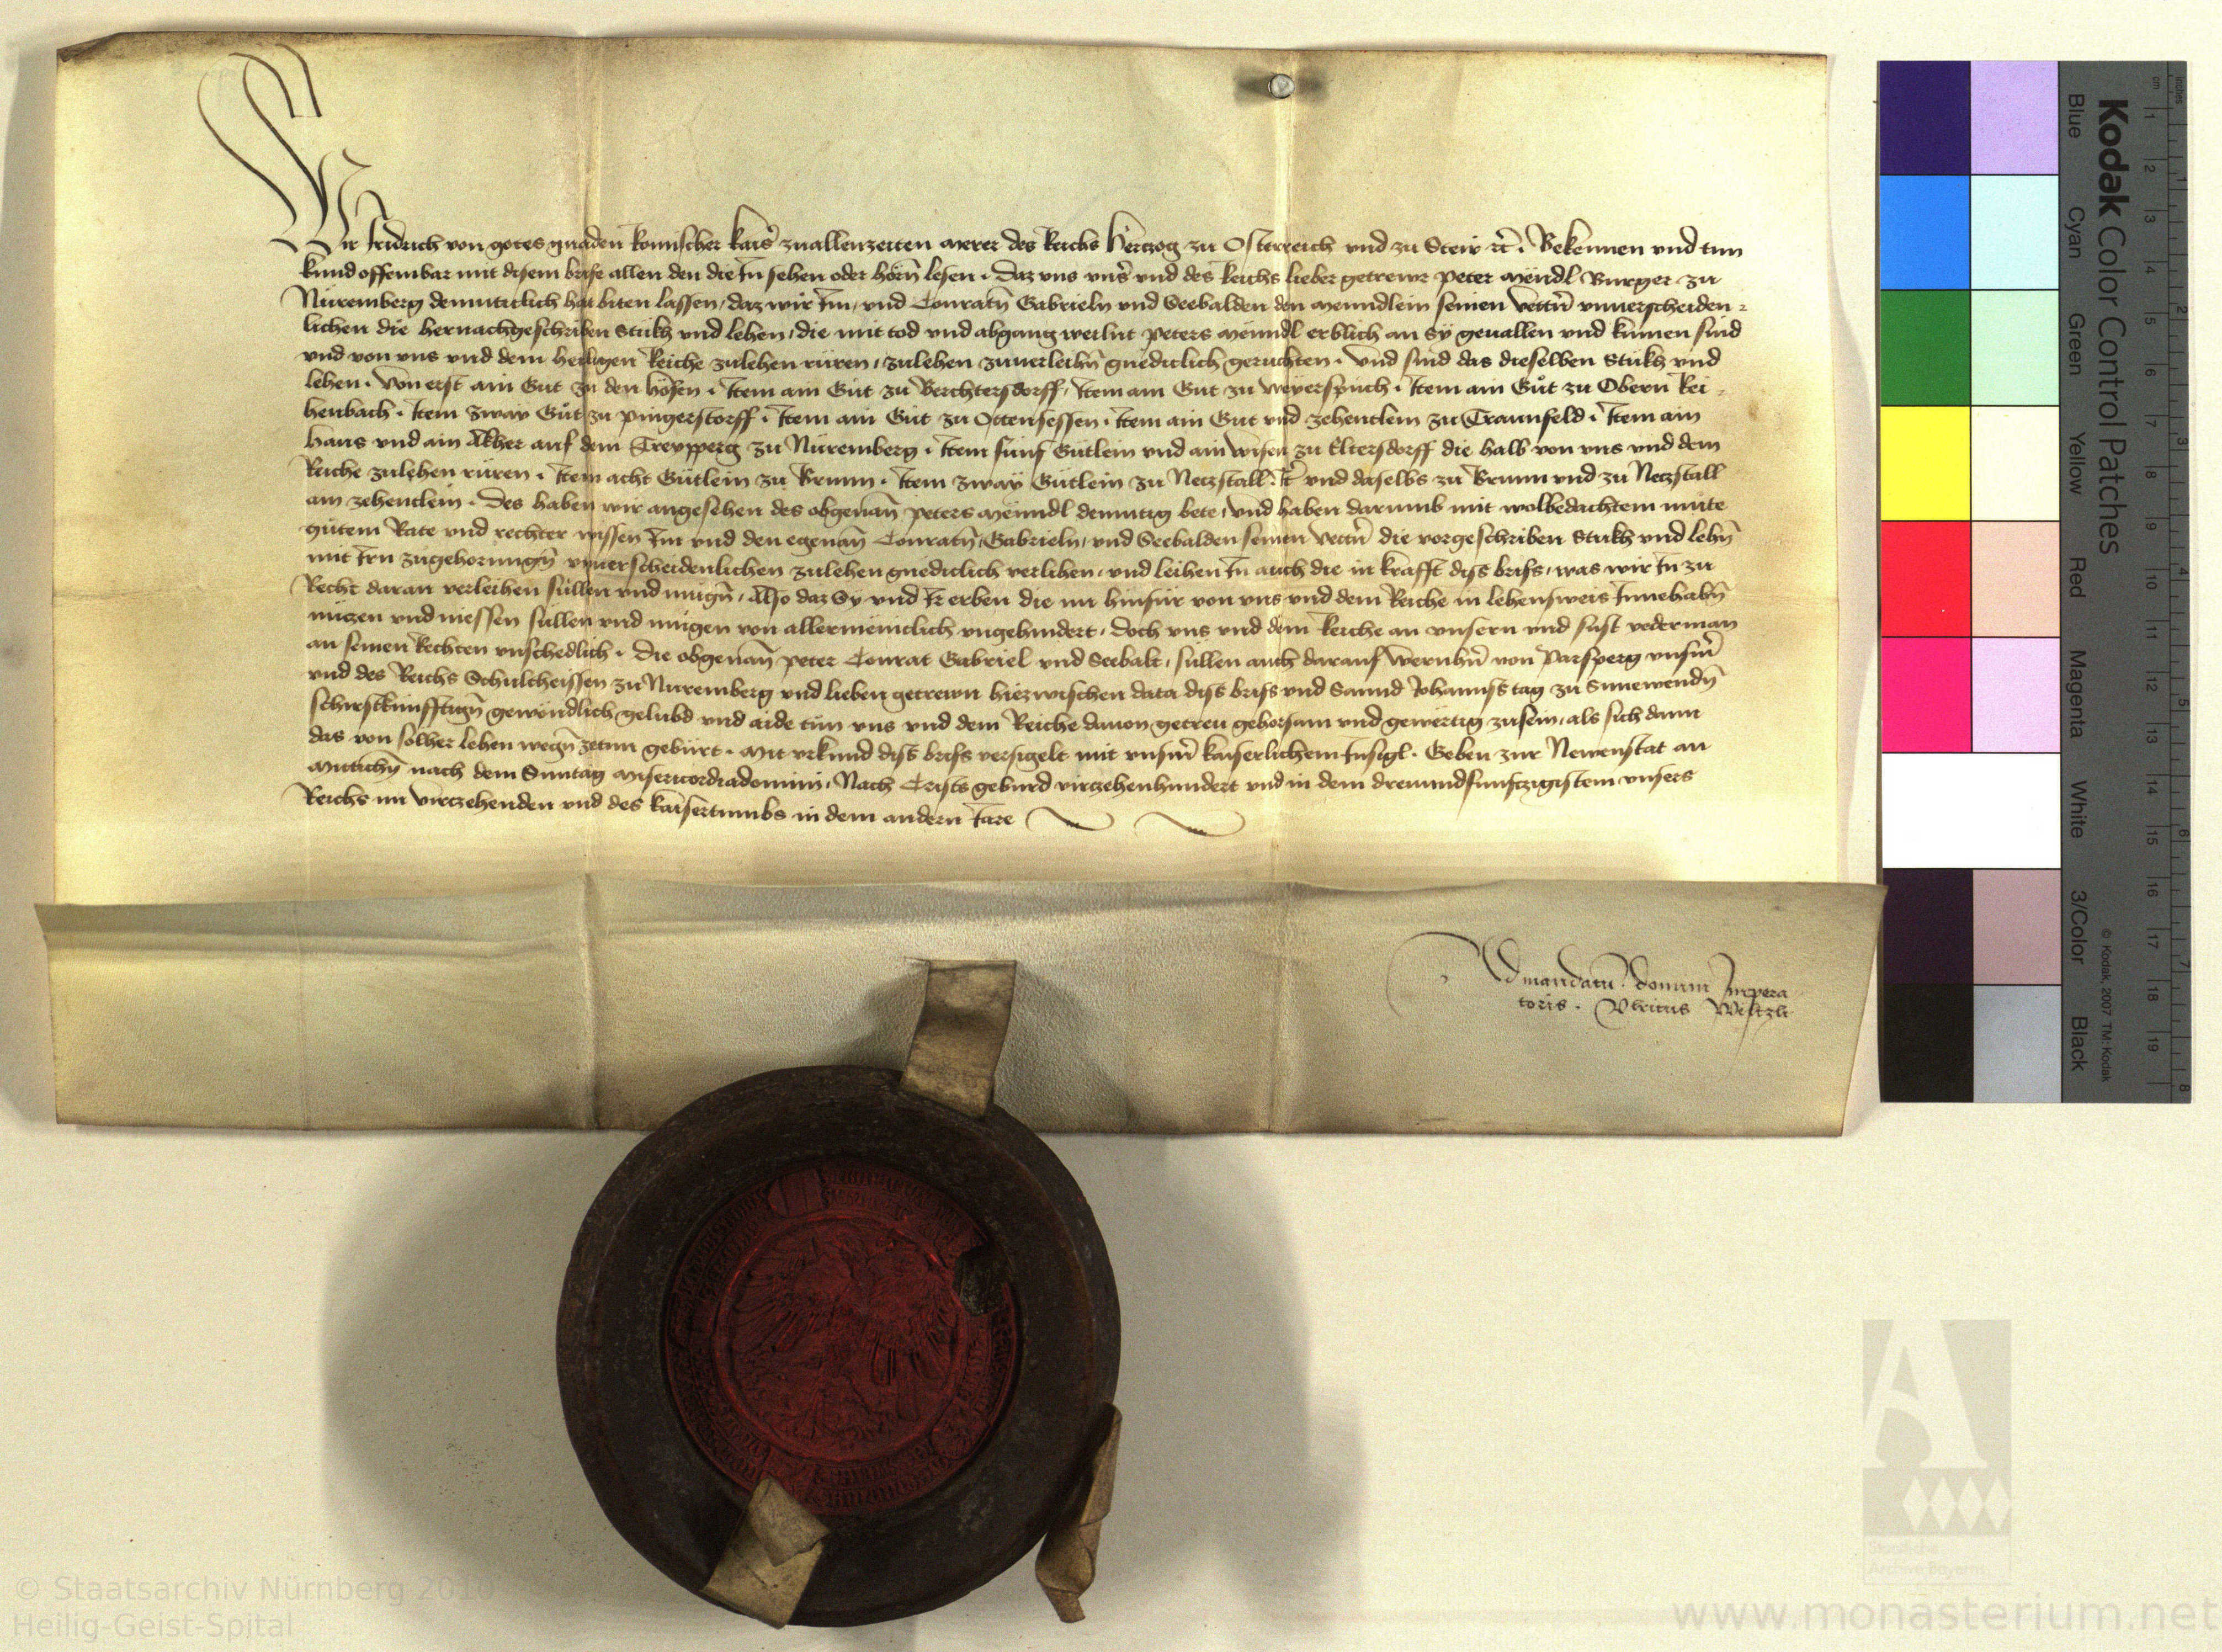 Wir fridrich von gotes gnaden Romischer kaiser zuallenzeiten merer des Reichs Hertzog zu Osterreich vnd zu Steir etc. Bekennen vnd tun
kund offembar mit disem briefe allen den die In sehen oder hörn lesen. Daz vns vnser vnd des Reichs lieber getrewr Peter Meindl Burger zu
Nüremberg demuticlich hat biten lassen, daz wir Im, vnd Conratn Gabrieln vnd Seebalden den Meindlein seinen vettern vnuerscheiden-
lichen die hernachgeschriben Stükh vnd lehen, die mit tod vnd abgang weilnt Peters Meindl erblich an Sy geuallen vnd kumen sind
vnd von vns vnd dem heiligen Reiche zulehen rüren, zulehen zuuerleihn gnediclich geruchten. Vnd sind das dieselben Stükh vnd
lehen. Von erst ain Gut zu den höfen. Item ain Gut zu Berchtersdorff, Item ain Gut zu Weyerspuch. Item ain Gut zu Obern Rei-
henbach. Item zway Gut zu Pingerstorff. Item ain Gut zu Ottensessen. Item ain Gut vnd zehentlein zu Traunfeld. Item ain
haus vnd ain Akher auf dem Treypperg zu Nüremberg. Item fünf Gütlein vnd ain wisen zu Eltersdorff die halb von vns vnd dem
Reiche zulehen rüren. Item acht Gütlein zu Brunn. Item zway Gütlein zu Netzstall etc vnd daselbs zu Brunn vnd zu Netzstall
ain zehentlein. Des haben wir angesehen des obgenann Peters Meindl demutig bete, vnd haben darumb mit wolbedachtem mute
gutem Rate vnd rechter wissen Im vnd den egenann Conratn, Gabrieln, vnd Seebalden seinen vettern die vorgeschriben Stukh vnd lehn
mit Irn zugehorungn vnuerscheidenlichen zulehen gnediclich verlihen, vnd leihen In auch die in krafft diss briefs, was wir In zu
Recht daran verleihen süllen vnd mugn, Also daz Sy vnd Ir erben die nu hinfür von vns vnd dem Reiche in lehensweis Innehabn
nüczen vnd niessen süllen vnd mügen von allermeniclich vngehindert, doch vns vnd dem Reiche an vnsern vnd sust yederman
an seinen Rechten vnschedlich. Die obgenann Peter Conrat Gabriel vnd Seebalt, süllen auch darauf Wernhern von Parsperg vnserm
vnd des Reichs Schultheissen zu Nuremberg vnd lieben getrewn hiezwischen data diss briefs vnd Sannd Johannss tag zu Sunewendn
schiristkünfftign gewöndlich gelubd vnd aide tün vns vnd dem Reiche dauon getreu gehorsam vnd gewertig zusein, als sich dann
das von solher lehen wegn zetun gebürt. Mit vrkund diss briefs versigelt mit vnserm kaiserlichem Insigl. Geben zur Newenstat an
Mittichn nach dem Suntag Misericordiadomini, Nach Crists geburd virczehenhundert vnd in dem dreiundfunfczigistem vnsers
Reichs im virczehenden vnd des kaisertumbs in dem andern Iare
Admandatum domini Impera
toris. Vlricus Weltzli
Kodak Color Control Patches
Blue Cyan Green Yellow Red Magenta White 3/Color Black
© Kodak, 2007 TM: Kodak
cm 1 2 3 4 5 6 7 8 9 10 11 12 13 14 15 16 17 18 19
inches 1 2 3 4 5 6 7 8
© Staatsarchiv Nürnberg 2010
Heilig-Geist-Spital
Staatliche
Archive Bayerns
www.monasterium.net